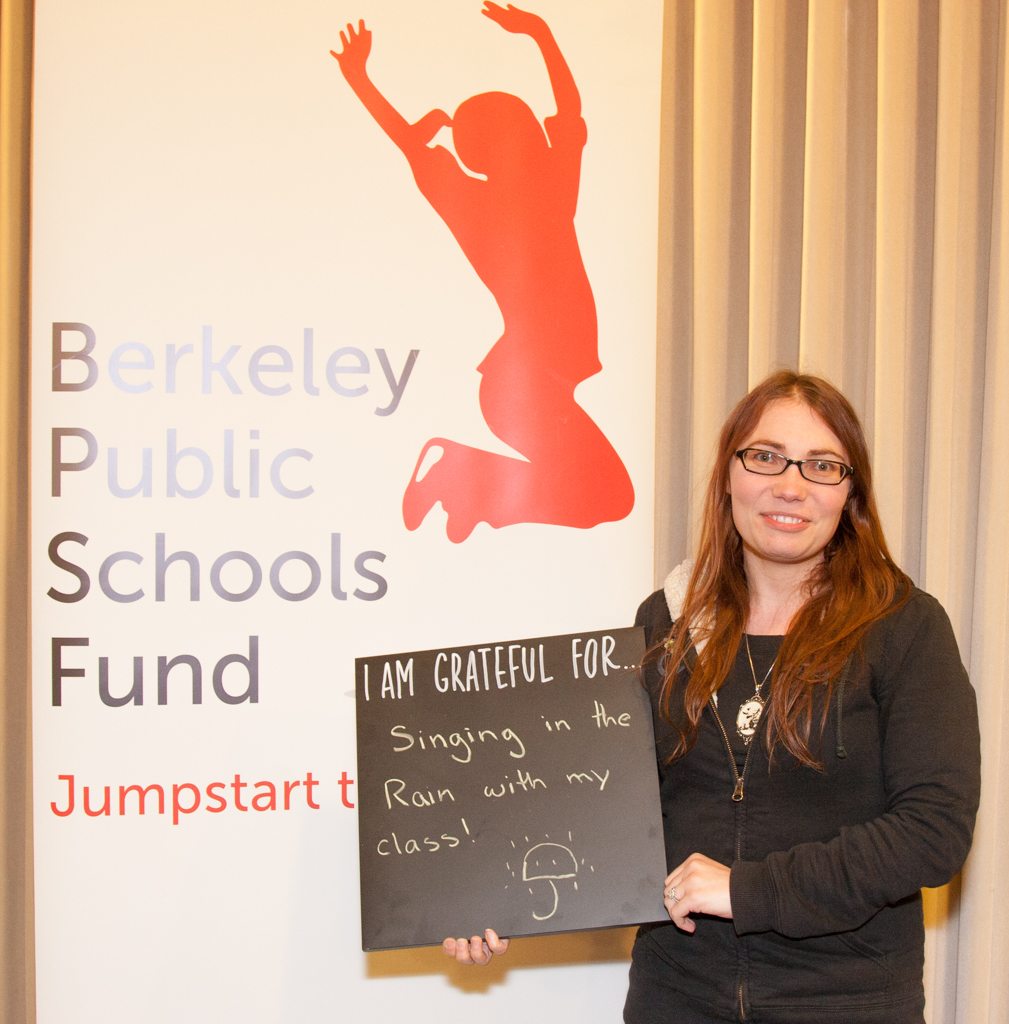 Berkeley
Public
Schools
Fund
Jumpstart
I AM GRATEFUL FOR...
Singing in the
Rain with my
class!